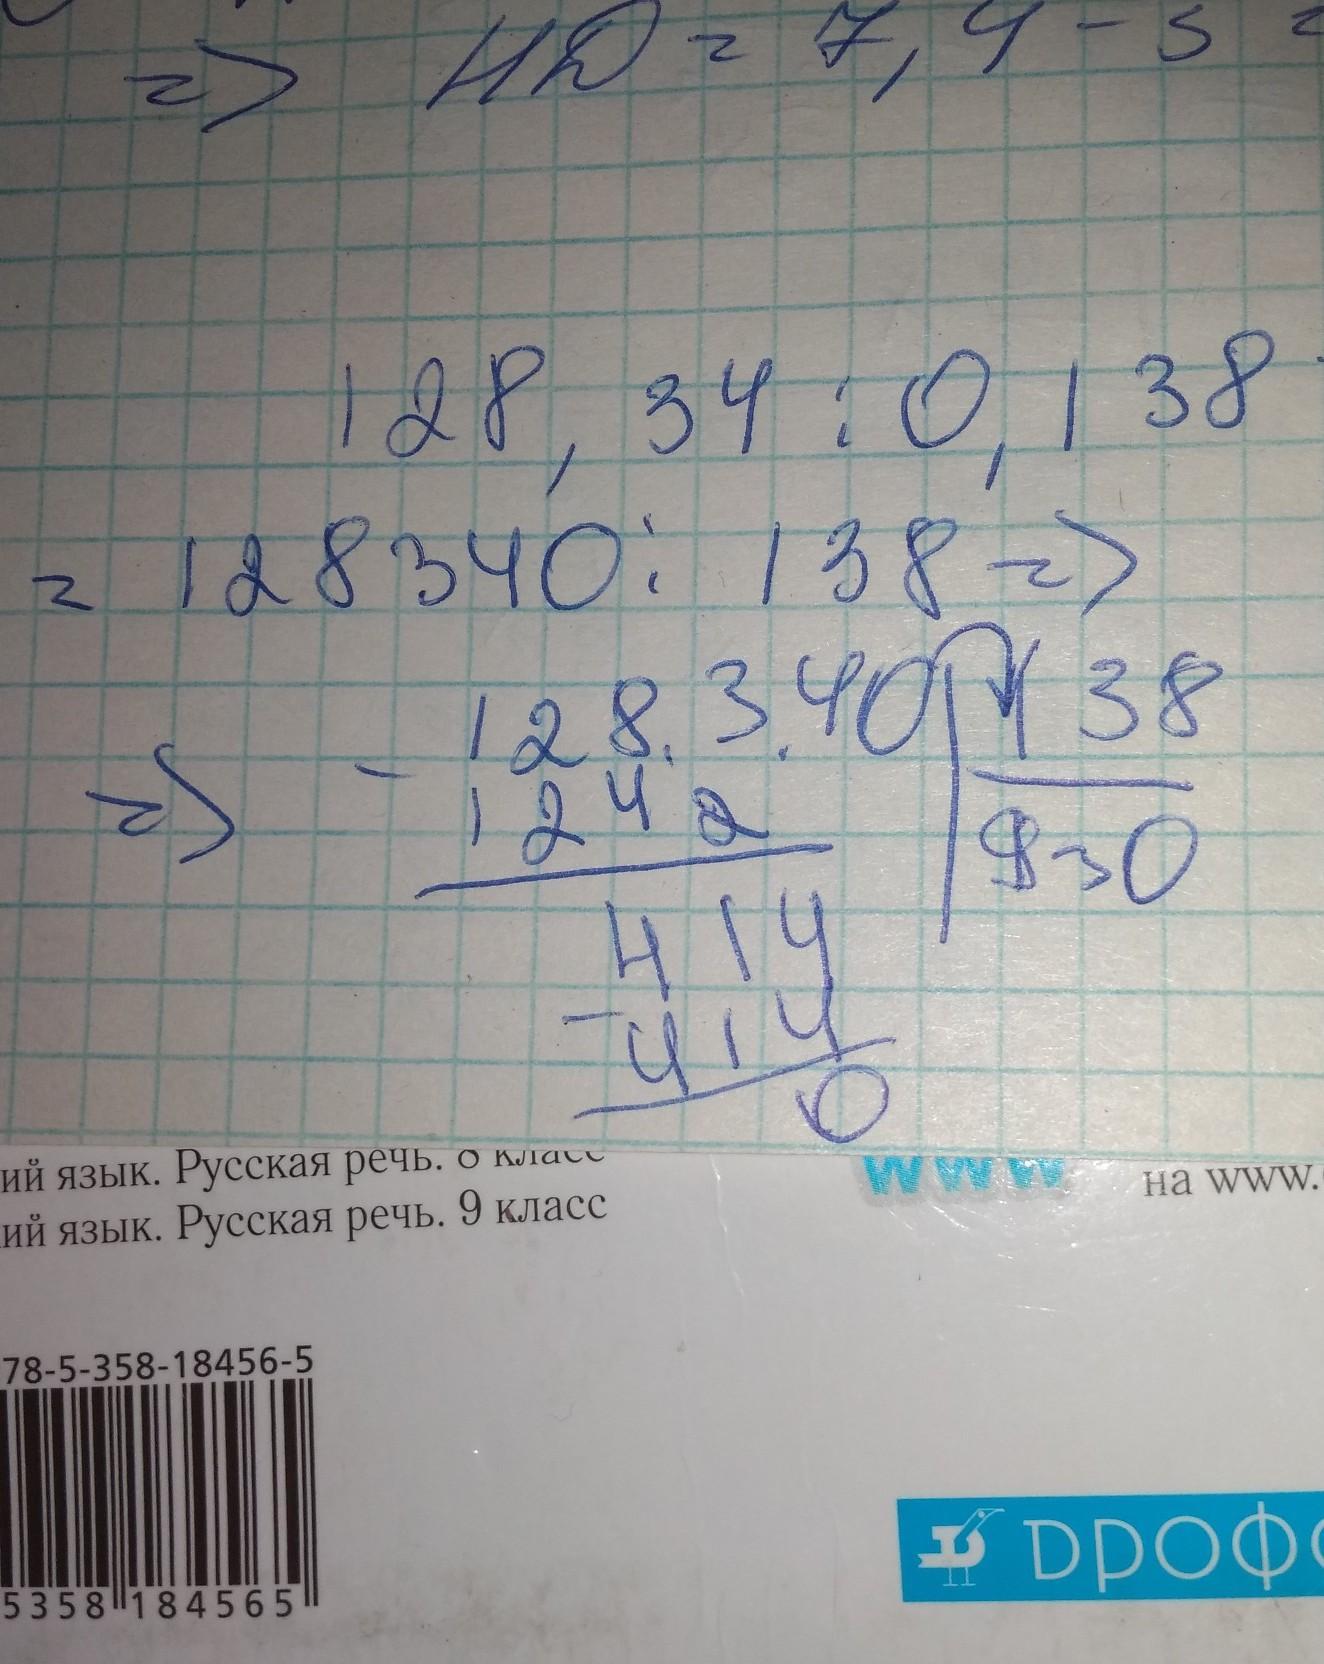 => HD = 7,4 - 5 =
128,34 : 0,138
= 128340 : 138 =>
=> - 128.3.40 138
1242 930
414
- 414
0
ий язык. Русская речь. 8 класс
ий язык. Русская речь. 9 класс
www
на www.
78-5-358-18456-5
5358 184565
ДРОФ